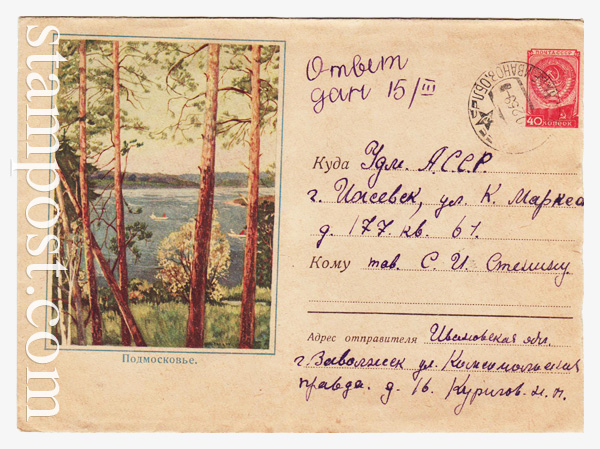 stampost.com
Подмосковье.
Ответ
дан 15/III
ПОЧТА СССР
40 КОПЕЕК
Куда Удм. АССР.
г. Ижевск, ул. К. Маркса
д. 177 кв. 61.
Кому тов. С. И. Стенину
Адрес отправителя Ивановская обл.
г. Заволжск ул. Комсомольская
правда. д. 16. Куригов